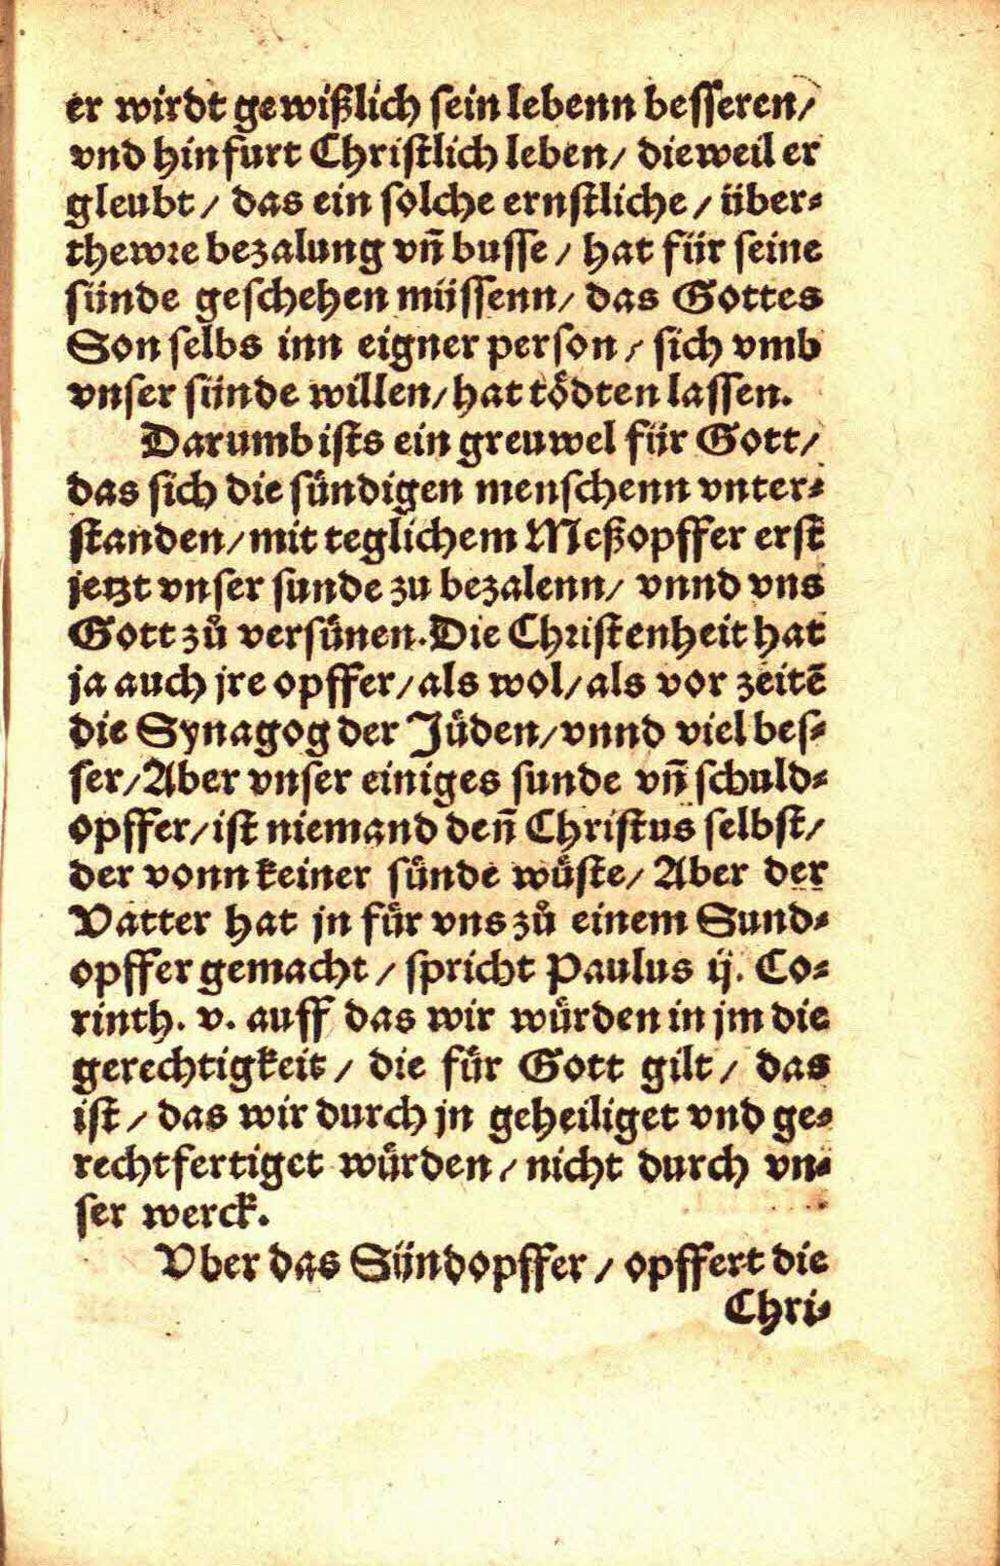 er wirdt gewißlich sein lebenn besseren/
vnd hinfurt Christlich leben/ dieweil er
gleubt/ das ein solche ernstliche/ über⸗
thewre bezalung vñ busse/ hat für seine
sünde geschehen müssenn/ das Gottes
Son selbs inn eigner person/ sich vmb
vnser sünde willen/ hat tödten lassen.
Darumb ists ein greuwel für Gott/
das sich die sündigen menschenn vnter⸗
standen/ mit teglichem Meßopffer erst
jetzt vnser sunde zu bezalenn/ vnnd vns
Gott zů versünen. Die Christenheit hat
ja auch jre opffer/ als wol/ als vor zeitē
die Synagog der Jüden/ vnnd viel bes⸗
ser/ Aber vnser einiges sunde vñ schuld⸗
opffer/ ist niemand deñ Christus selbst/
der vonn keiner sünde wüste/ Aber der
Vatter hat jn für vns zů einem Sund⸗
opffer gemacht/ spricht Paulus ij. Co⸗
rinth. v. auff das wir würden in jm die
gerechtigkeit/ die für Gott gilt/ das
ist/ das wir durch jn geheiliget vnd ge⸗
rechtfertiget würden/ nicht durch vn⸗
ser werck.
Vber das Sündopffer/ opffert die
Chri⸗